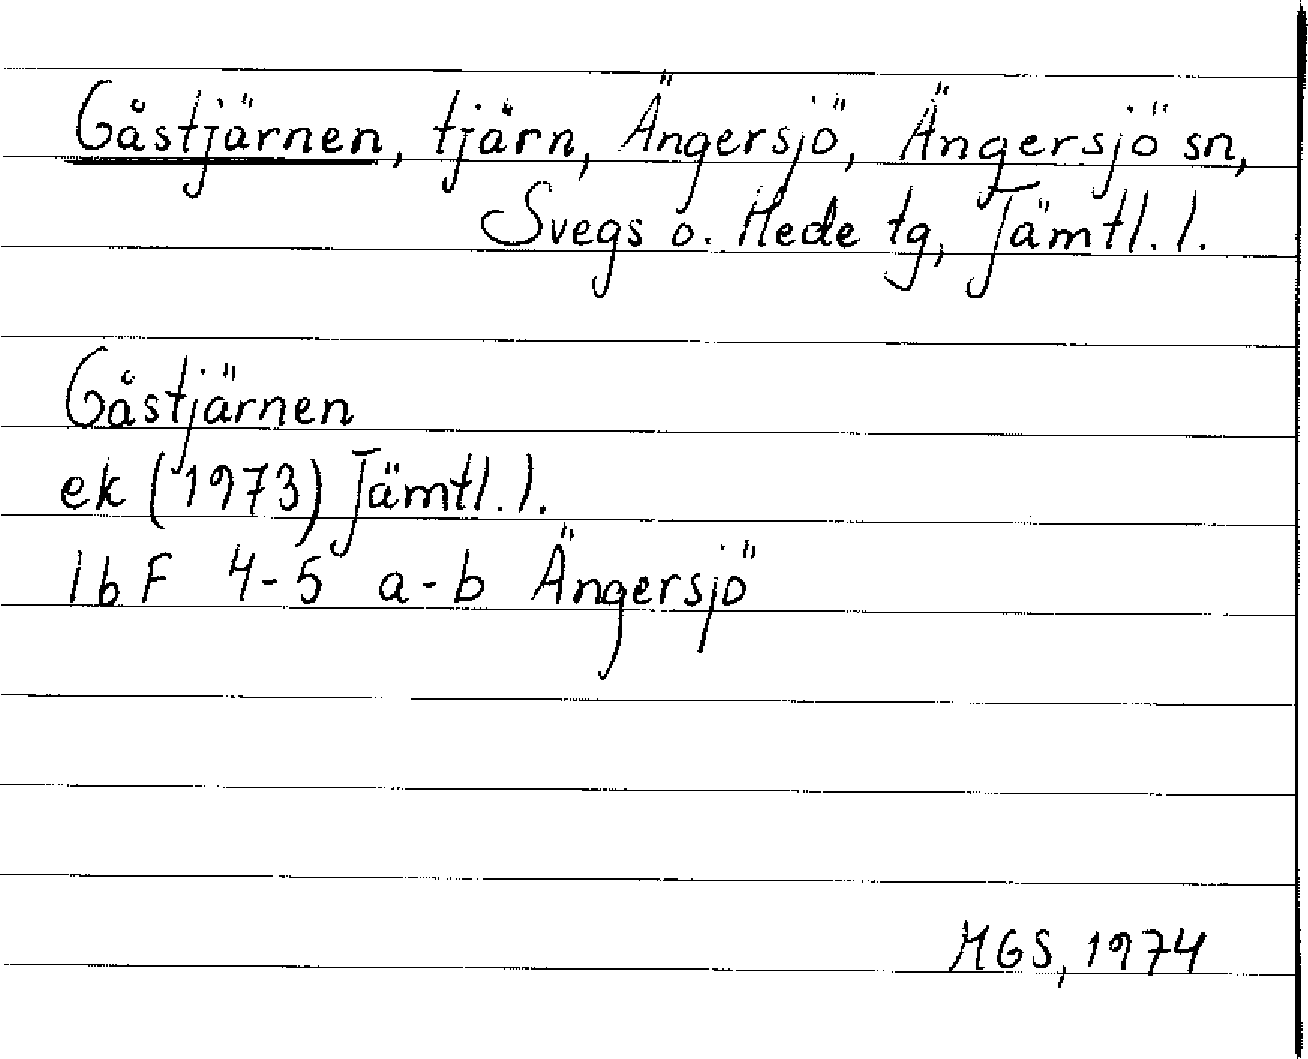 Gåstjärnen, tjärn, Ängersjö, Ängersjö sn,
Svegs o. Hede tg, Jämtl. l.
Gåstjärnen
ek (1973) Jämtl. l.
16F 4-5 a-b Ängersjö
MGS, 1974